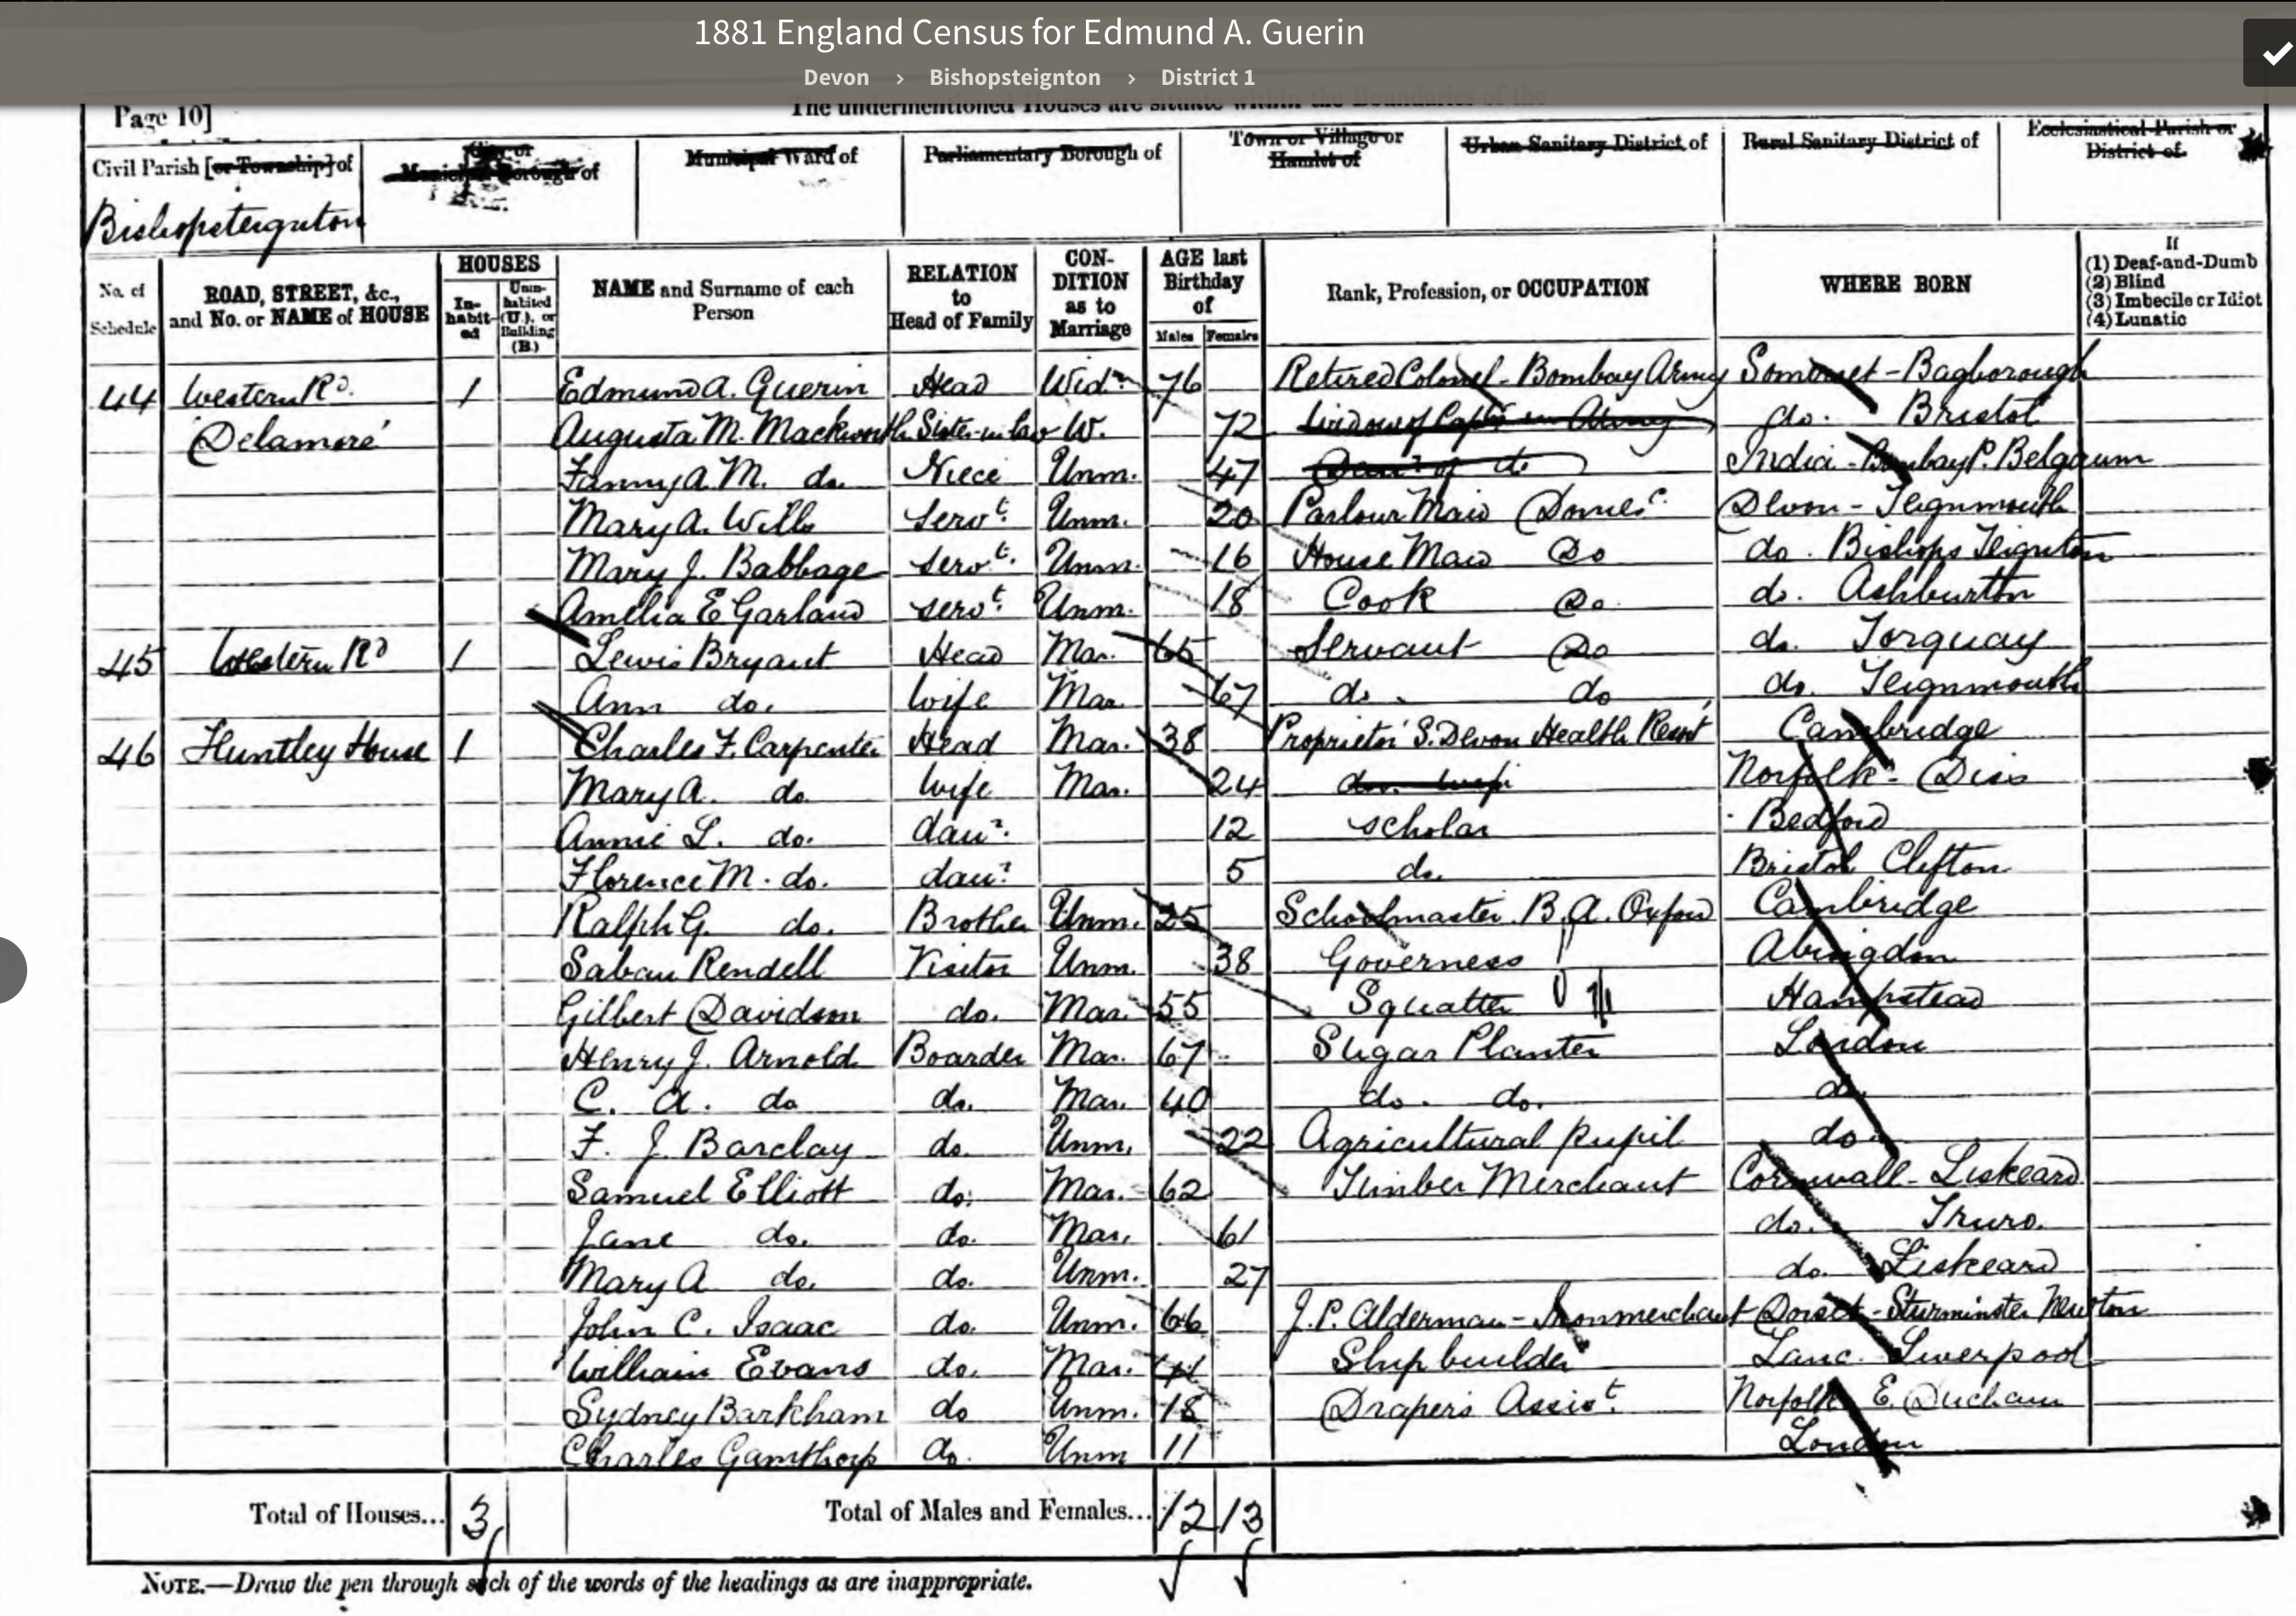 1881 England Census for Edmund A. Guerin
Devon › Bishopsteignton › District 1
The undermentioned Houses are situate within the Boundaries of the
Page 10]
Civil Parish [or Township] of
City or Municipal Borough of
Municipal Ward of
Parliamentary Borough of
Town or Village or Hamlet of
Urban Sanitary District of
Rural Sanitary District of
Ecclesiastical Parish or District of
Bishopsteignton
No. of Schedule
ROAD, STREET, &c., and No. or NAME of HOUSE
HOUSES
In-habit-ed
Unin-habited (U.), or Building (B.)
NAME and Surname of each Person
RELATION to Head of Family
CON-DITION as to Marriage
AGE last Birthday of
Males Females
Rank, Profession, or OCCUPATION
WHERE BORN
If
(1) Deaf-and-Dumb
(2) Blind
(3) Imbecile or Idiot
(4) Lunatic
44 Western Rd. 1 Edmund A. Guerin Head Widr 76 Retired Colonel - Bombay Army Somerset - Bagborough
'Delamore' Augusta M. Mackworth Sister-in-law W. 72 Widow of Captn in Army do. Bristol
Fanny A. M. do. Niece Unm. 47 Daur of do India - Bombay P. Belgaum
Mary A. Wills Servt. Unm. 20 Parlour Maid (Domesc. Devon - Teignmouth
Mary J. Babbage Servt. Unm. 16 House Maid Do do. Bishops Teignton
Amelia E Garland Servt. Unm. 18 Cook Do. do. Ashburton
45 Western Rd 1 Lewis Bryant Head Mar. 65 Servant Do do. Torquay
Ann do. Wife Mar. 67 do. do do. Teignmouth
46 Huntley House 1 Charles F. Carpenter Head Mar. 38 Proprietor S. Devon Health Resrt Cambridge
Mary A. do. Wife Mar. 24 do. wife Norfolk - Diss
Annie L. do. daur. 12 Scholar Bedford
Florence M. do. daur. 5 do. Bristol Clifton
Ralph G. do. Brother Unm. 25 Schoolmaster. B.A. Oxford Cambridge
Rendell Visitor Unm. 38 Governess Abingdon
Gilbert Davidson do. Mar. 55 Squatter Hampstead
Henry J. Arnold Boarder Mar. 67 Sugar Planter London
C. A. do do. Mar. 40 do. do. do.
F. J. Barclay do. Unm. 22 Agricultural Pupil do.
Samuel Elliott do. Mar. 62 Timber Merchant Cornwall - Liskeard
Jane do. do. Mar. 61 do. Truro.
Mary A do. do. Unm. 27 do. Liskeard
John C. Isaac do. Unm. 66 J.P. Alderman - Ironmerchant Dorset - Sturminster Newton
William Evans do. Mar. 41 Shipbuilder Lanc. Liverpool
Sydney Barkham do Unm. 18 Drapers Assist. Norfolk E. Dereham
Charles Gamthorp do. Unm 11 London
Total of Houses... 3
Total of Males and Females... 12 13
NOTE.—Draw the pen through such of the words of the headings as are inappropriate.